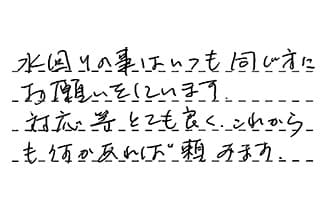 水回りの事はいつも同じ方に
お願いをしています。
対応等とても良く、これから
も何かあれば頼みます。